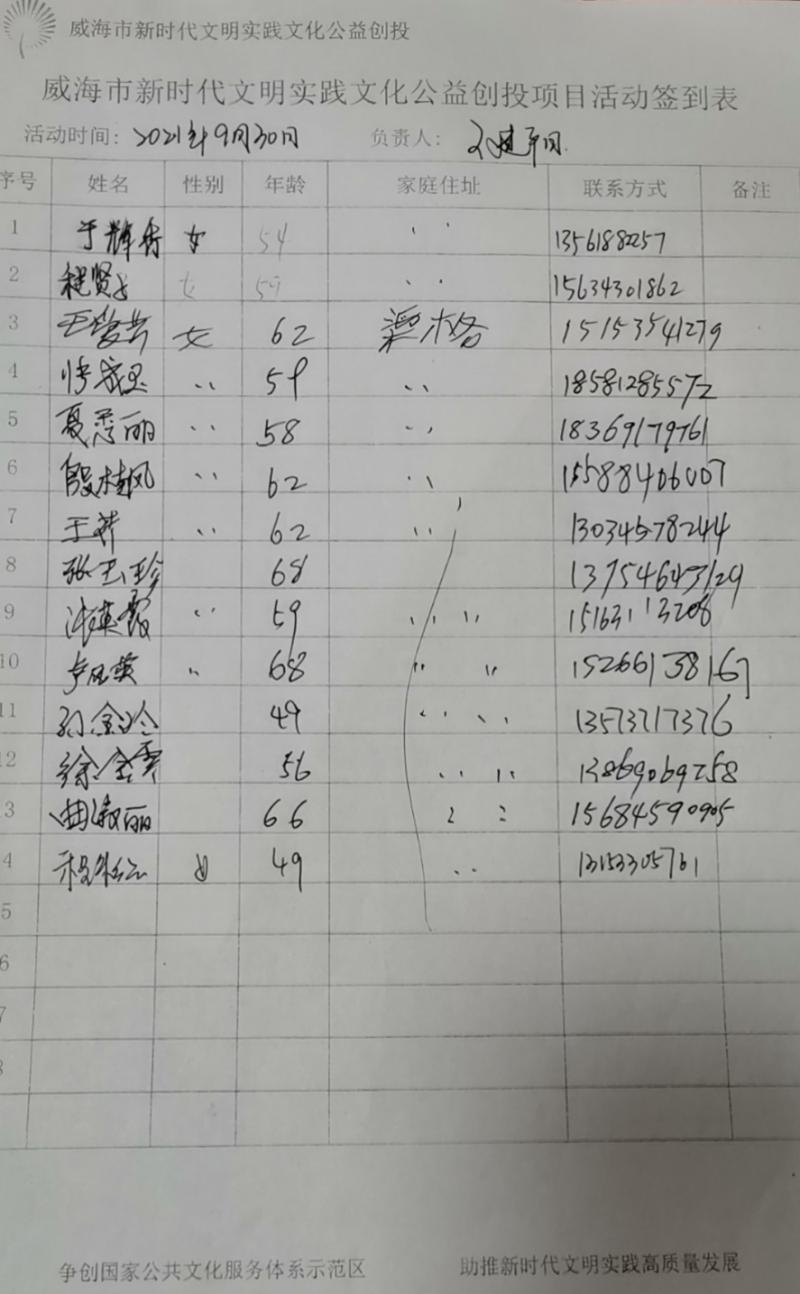 威海市新时代文明实践文化公益创投
威海市新时代文明实践文化公益创投项目活动签到表
活动时间: 2021年9月30日 负责人:
序号 姓名 性别 年龄 家庭住址 联系方式 备注
1 于辉秀 女 54 〃 13561882257
2 程贤 女 59 〃 15634301862
3 女 62 15153541279
4 〃 59 〃 18581285572
5 夏秀丽 〃 58 〃 18369179761
6 殷桂凤 〃 62 〃 15588406007
7 〃 62 〃 13034578244
8 张玉珍 68
9 〃 59 〃 〃 15163113208
10 〃 68 〃 〃 15266138167
11 孙金玲 49 〃 〃 13573717376
12 徐金霞 56 〃 〃 13869069258
13 曲淑丽 66 〃 〃 15684590905
14 49 〃 13153305761
5
6
7
8
争创国家公共文化服务体系示范区 助推新时代文明实践高质量发展